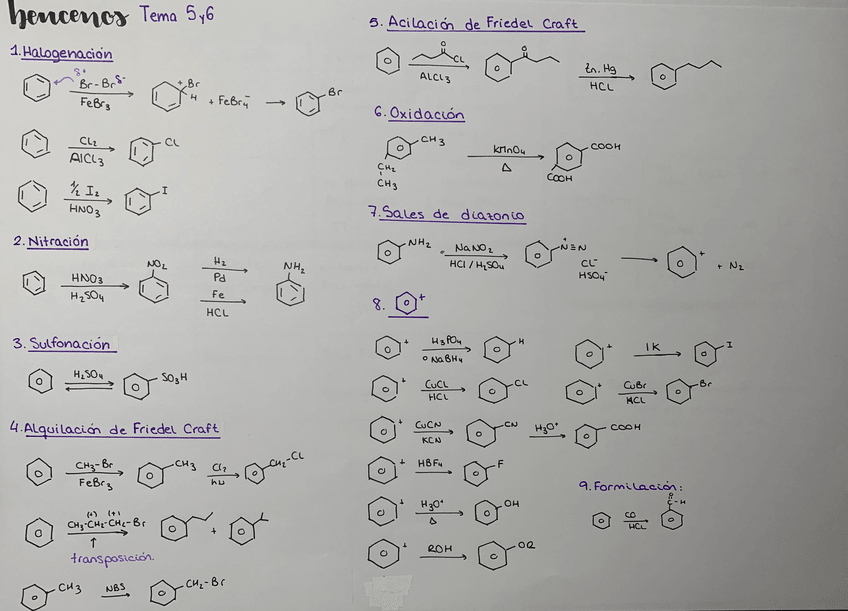 bencenos Tema 5 y 6
1. Halogenación
δ+
Br-Br δ-
FeBr3
+ Br
H
+ FeBr4-
Br
Cl2
AlCl3
CL
1/2 I2
HNO3
I
2. Nitración
HNO3
H2SO4
NO2
H2
Pd
Fe
HCL
NH2
3. Sulfonación
H2SO4
SO3H
4. Alquilación de Friedel Craft
CH3-Br
FeBr3
CH3
Cl2
hν
CH2-CL
(+) (+)
CH3-CH2-CH2-Br
+
transposición
CH3
NBS
CH2-Br
5. Acilación de Friedel Craft
O
CL
AlCL3
O
Zn, Hg
HCL
6. Oxidación
CH3
CH2
CH3
KMnO4
Δ
COOH
COOH
7. Sales de diazonio
NH2
NaNO2
HCl / H2SO4
+
N≡N
CL-
HSO4-
+
+ N2
8. +
+
H3PO4
o NaBH4
H
+
IK
I
+
CuCL
HCL
CL
+
CuBr
HCL
Br
+
CuCN
KCN
CN
H3O+
COOH
+
HBF4
F
+
H3O+
Δ
OH
+
ROH
OR
9. Formilación:
CO
HCL
O
C-H